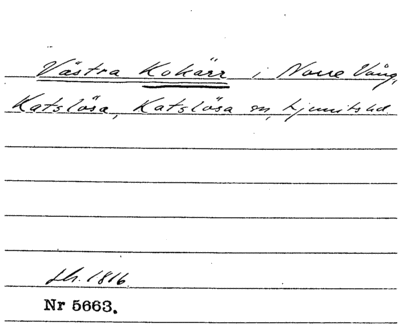 Västra Kokärr i Norre Vång,
Katslösa, Katslösa sn, Ljunits hd.
sk. 1816.
Nr 5663.